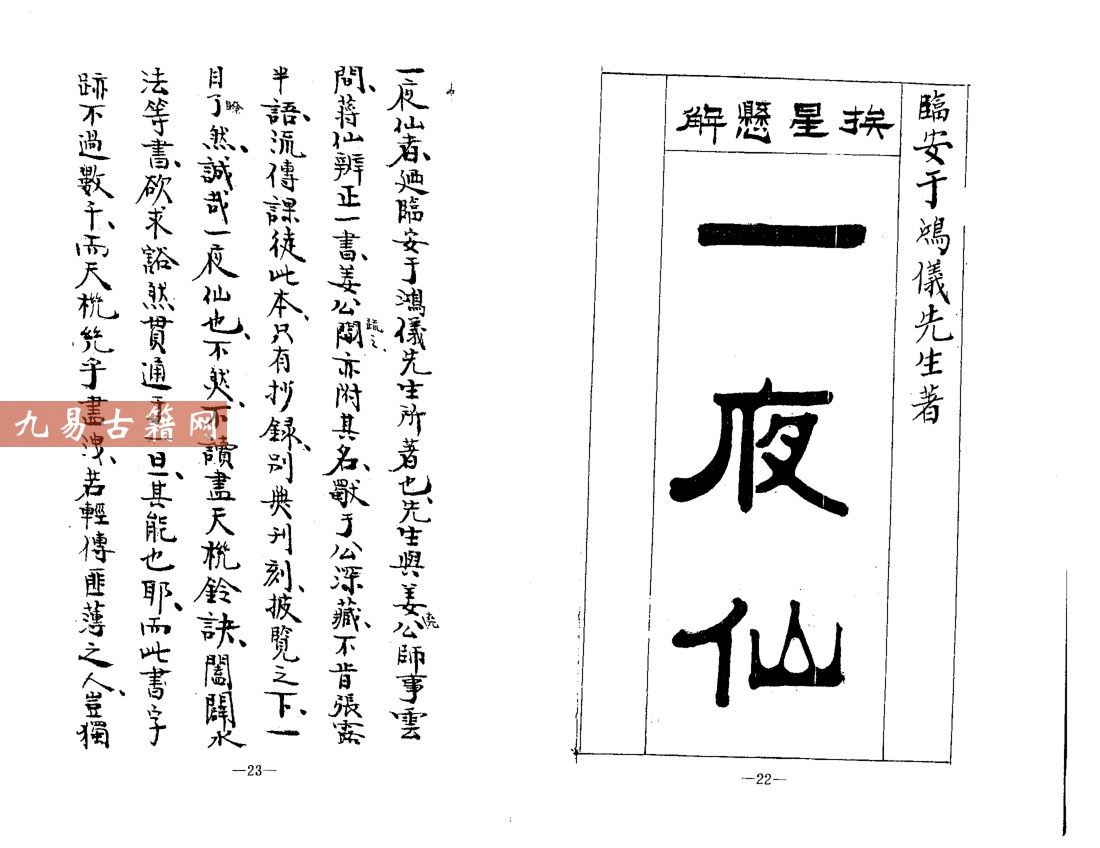 臨安于鴻儀先生著
挨星懸解
一夜仙
—22—
一夜仙者、廼臨安于鴻儀先生所著也、先生與姜公師事雲
間、蔣仙辨正一書、姜公闢亦附其名、獨于公深藏、不肯張露
半語、流傳課徒此本、只有抄錄、別無刊刻、披覽之下、一
目了然、誠哉一夜仙也、不然、不讀盡天機鈐訣、闔闢水
法等書、欲求豁然貫通于一旦、其能也耶、而此書字
跡不過數千、而天機㡬乎盡洩、若輕傳匪薄之人、豈獨
—23—
九易古籍网